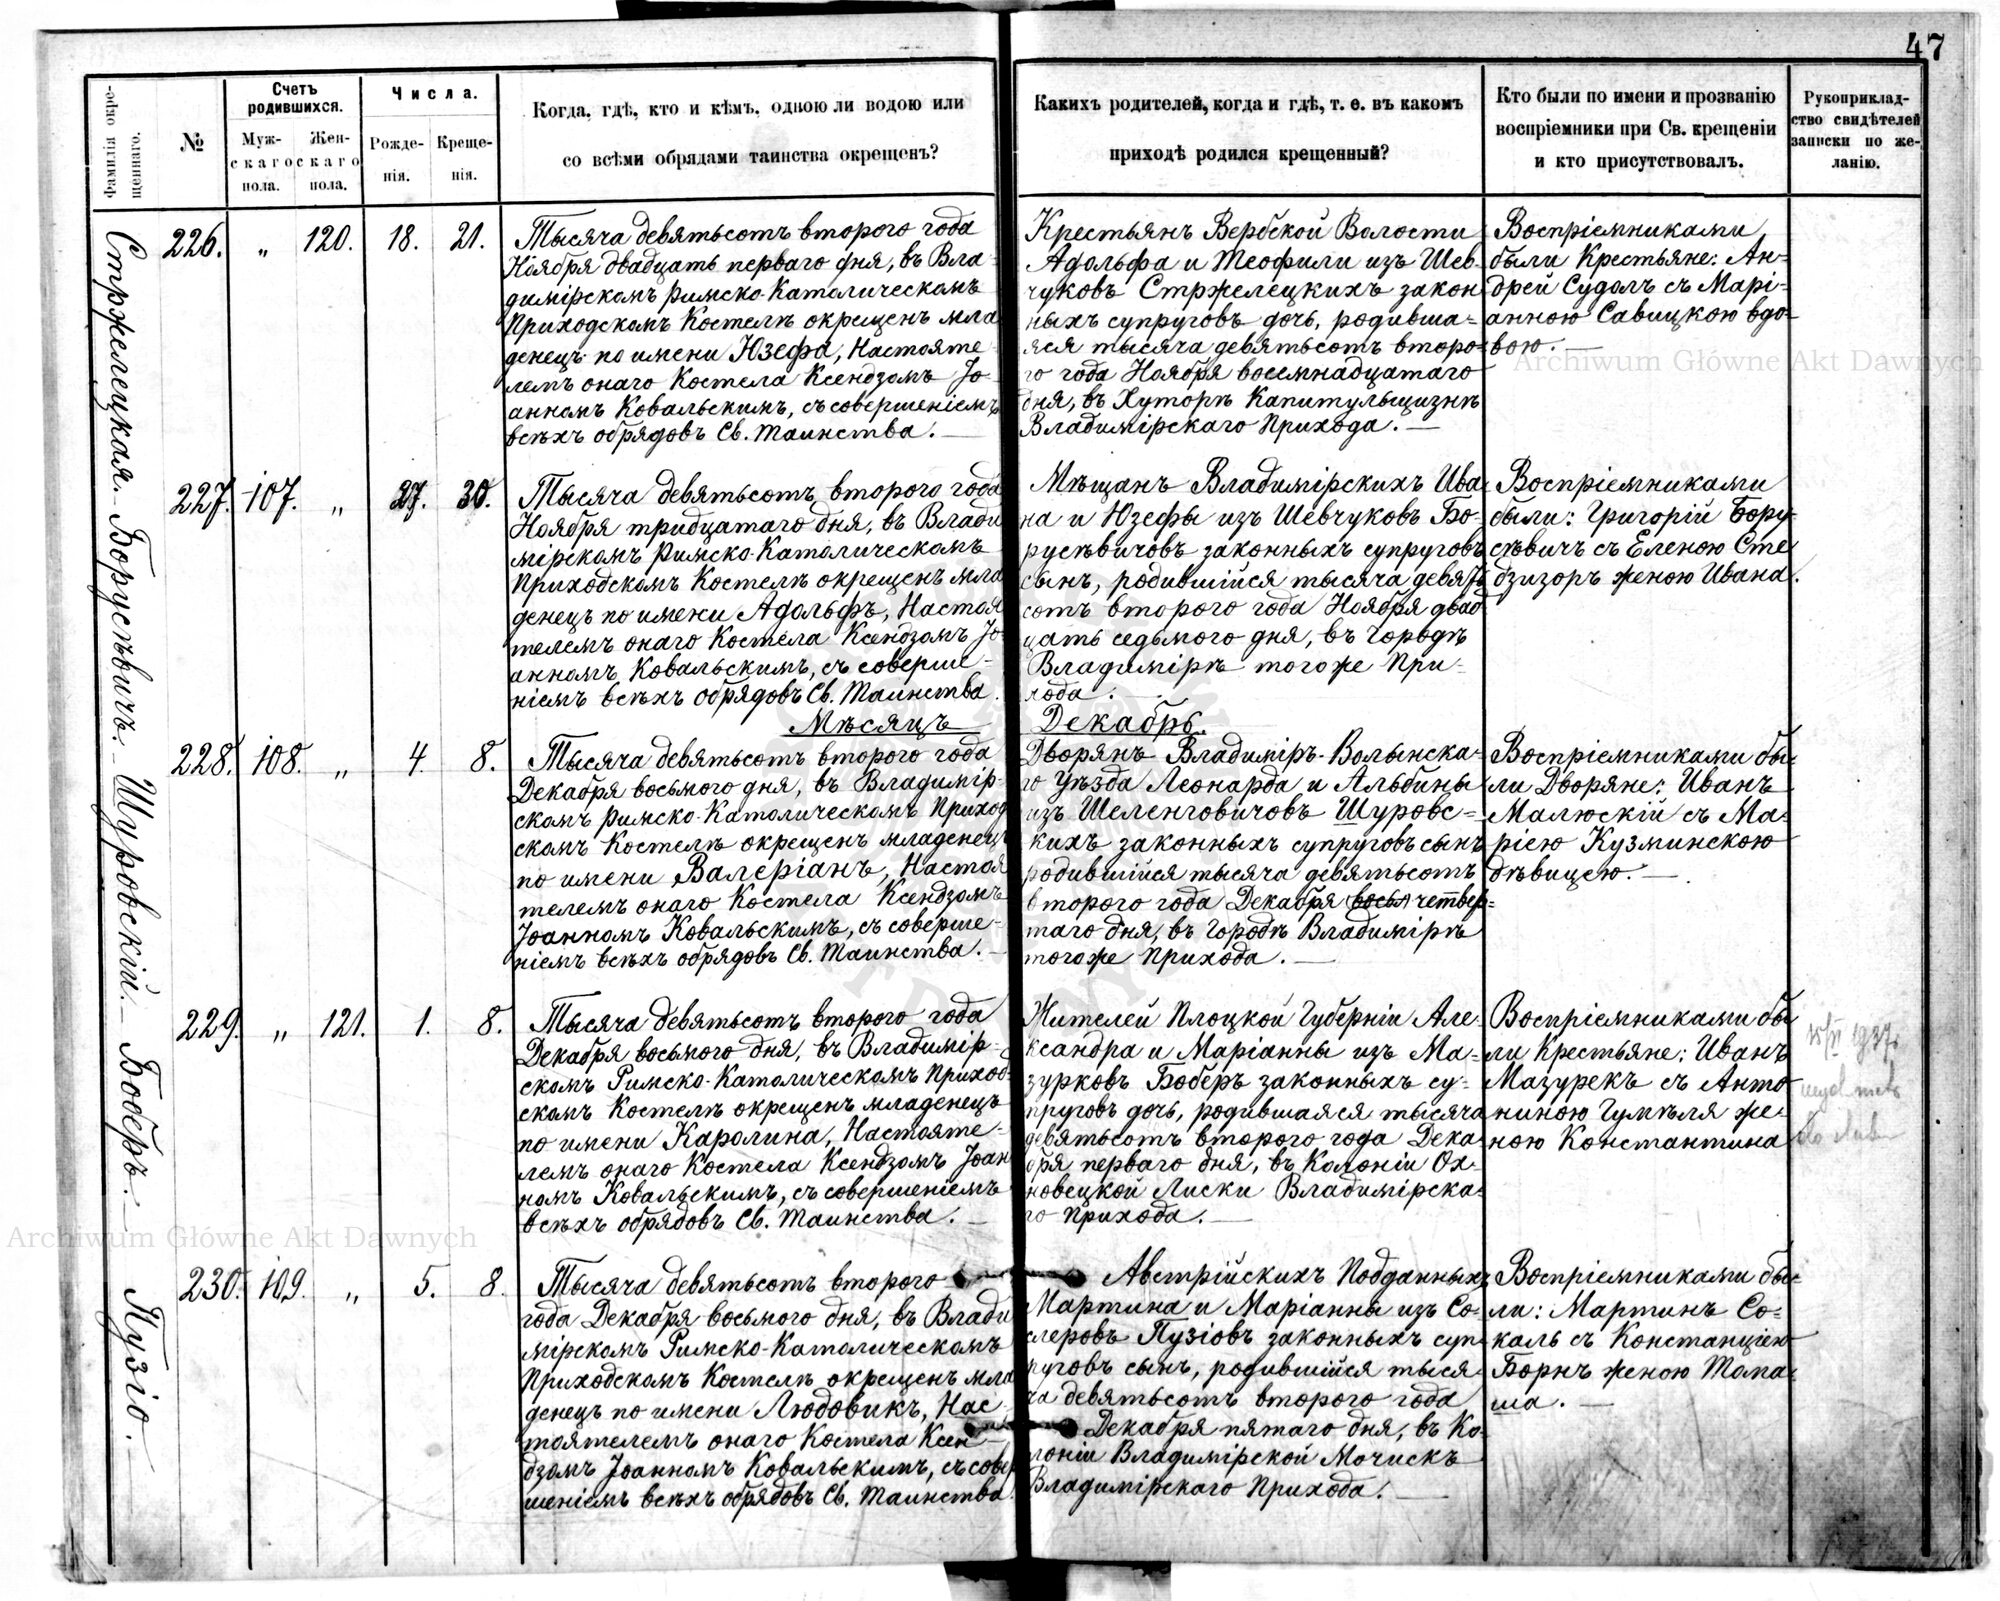 47
Фамилія окре-
щеннаго.
№
Счетъ
родившихся.
Муж-
скаго
пола.
Жен-
скаго
пола.
Числа.
Рожде-
нія.
Креще-
нія.
Когда, гдѣ, кто и кѣмъ, одною ли водою или
со всѣми обрядами таинства окрещенъ?
Какихъ родителей, когда и гдѣ, т. е. въ какомъ
приходѣ родился крещенный?
Кто были по имени и прозванію
воспріемники при Св. крещеніи
и кто присутствовалъ.
Рукоприклад-
ство свидѣтелей
записки по же-
ланію.
Стржелецкая.
226.
„
120.
18.
21.
Тысяча девятьсотъ второго года
Ноября двадцать перваго дня, въ Вла-
димірскомъ Римско-Католическомъ
Приходскомъ Костелѣ окрещенъ мла
денецъ по имени Юзефа, Настояте-
лемъ онаго Костела Ксендзомъ Іо-
анномъ Ковальскимъ, съ совершеніемъ
всѣхъ обрядовъ Св. Таинства.
Крестьянъ Вербской Волости
Адольфа и Теофили изъ Шев-
чуковъ Стржелецкихъ закон
ныхъ супруговъ дочь, родивша=
яся тысяча девятьсотъ второ=
го года Ноября восемнадцатаго
дня, въ Хуторѣ Капитульщизнѣ
Владимірскаго Прихода.
Воспріемниками
были Крестьяне: Ан-
дрей Судолъ съ Марі-
анною Савицкою вдо=
вою.
Борусѣвичъ.
227.
107.
„
27.
30.
Тысяча девятьсотъ второго года
Ноября тридцатаго дня, въ Влади
мірскомъ Римско-Католическомъ
Приходскомъ Костелѣ окрещенъ мла
денецъ по имени Адольфъ, Настоя
телемъ онаго Костела Ксендзомъ Іо
анномъ Ковальскимъ, съ соверше-
ніемъ всѣхъ обрядовъ Св. Таинства.
Мѣщанъ Владимірскихъ Ива
на и Юзефы изъ Шевчуковъ Бо-
русѣвичовъ законныхъ супруговъ
сынъ, родившійся тысяча девять
сотъ второго года Ноября двад
цать седьмого дня, въ Городѣ
Владимірѣ того же При-
хода.
Воспріемниками
были: Григорій Бору-
сѣвичъ съ Еленою Сте
дзизоръ женою Ивана.
Мѣсяцъ Декабрь.
Шуровскій.
228.
108.
„
4.
8.
Тысяча девятьсотъ второго года
Декабря восьмого дня, въ Владимір-
скомъ Римско-Католическомъ Приход
скомъ Костелѣ окрещенъ младенецъ
по имени Валеріанъ, Настоя
телемъ онаго Костела Ксендзомъ
Іоанномъ Ковальскимъ, съ соверше-
ніемъ всѣхъ обрядовъ Св. Таинства.
Дворянъ Владиміръ-Волынска-
го Уѣзда Леонарда и Альбины
изъ Шеленговичовъ Шуровс=
кихъ законныхъ супруговъ сынъ
родившійся тысяча девятьсотъ
второго года Декабря (вось) четвер=
таго дня, въ Городѣ Владимірѣ
того же Прихода.
Воспріемниками бы-
ли Дворяне: Иванъ
Малюскій съ Ма-
ріею Кузминскою
дѣвицею.
Боберъ.
229.
„
121.
1.
8.
Тысяча девятьсотъ второго года
Декабря восьмого дня, въ Владимір-
скомъ Римско-Католическомъ Приход-
скомъ Костелѣ окрещенъ младенецъ
по имени Каролина, Настояте-
лемъ онаго Костела Ксендзомъ Іоан
номъ Ковальскимъ, съ совершеніемъ
всѣхъ обрядовъ Св. Таинства.
Жителей Плоцкой Губерніи Але
ксандра и Маріанны изъ Ма-
зурковъ Боберъ законныхъ су-
пруговъ дочь, родившаяся тысяча
девятьсотъ второго года Дека
бря перваго дня, въ Колоніи Ох-
новецкой Лиски Владимірска-
го Прихода.
Воспріемниками бы-
ли Крестьяне: Иванъ
Мазурекъ съ Анто
ниною Гумѣля же-
ною Константина
1937
Пузіо.
230.
109.
„
5.
8.
Тысяча девятьсотъ второго
года Декабря восьмого дня, въ Влади
мірскомъ Римско-Католическомъ
Приходскомъ Костелѣ окрещенъ мла
денецъ по имени Людовикъ, Нас
тоятелемъ онаго Костела Ксен
дзомъ Іоанномъ Ковальскимъ, съ совер
шеніемъ всѣхъ обрядовъ Св. Таинства.
Австрійскихъ Подданныхъ
Мартина и Маріанны изъ Со-
леровъ Пузіовъ законныхъ суп
руговъ сынъ, родившійся тыся-
ча девятьсотъ второго года
Декабря пятаго дня, въ Ко
лоніи Владимірской Мочискъ
Владимірскаго Прихода.
Воспріемниками бы-
ли: Мартинъ Со-
каль съ Констанціею
Борнъ женою Тома-
ша.
Archiwum Główne Akt Dawnych
Archiwum Główne Akt Dawnych